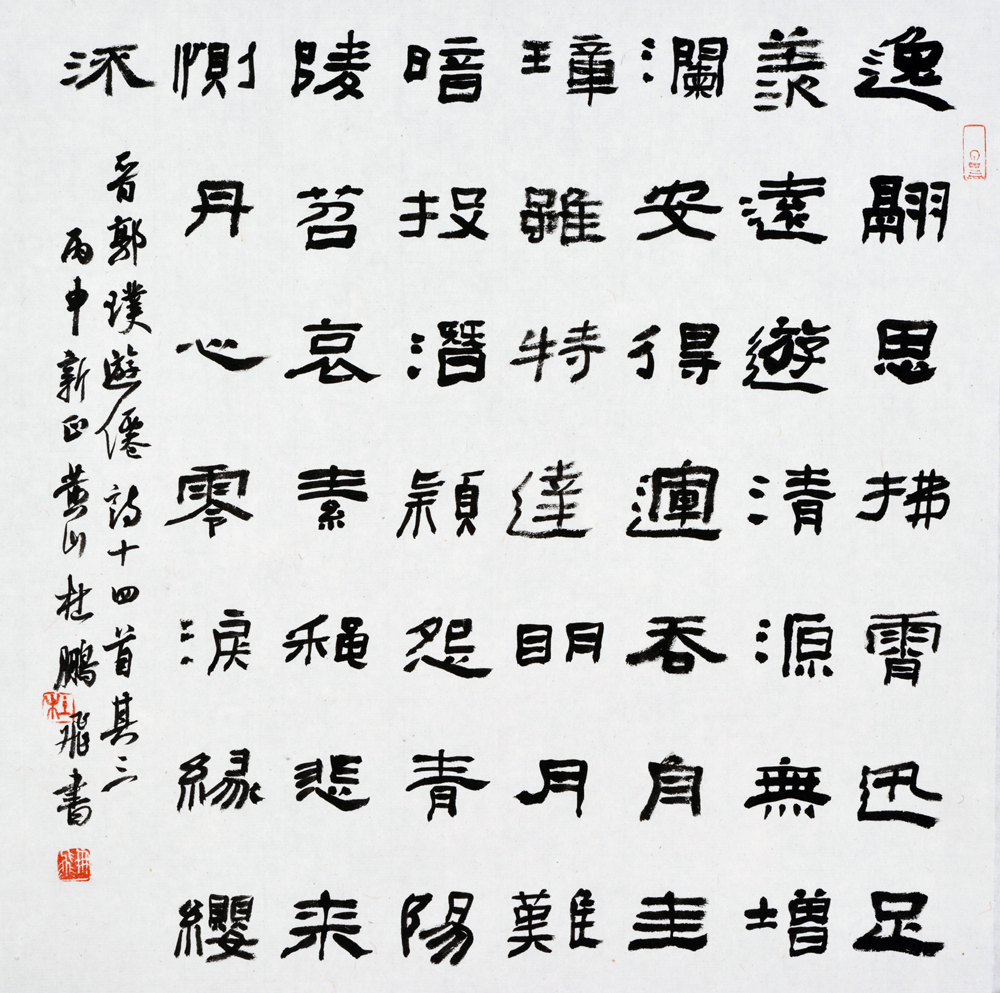 逸翮思拂霄迅足
羨遠遊清源無增
瀾安得運吞舟圭
璋雖特達眀月難
暗投潛穎怨青陽
陵苕哀素穐悲来
惻丹心零淚緣纓
流
晉郭璞遊僊詩十四首其三
丙申新正黃山杜鵬飛書